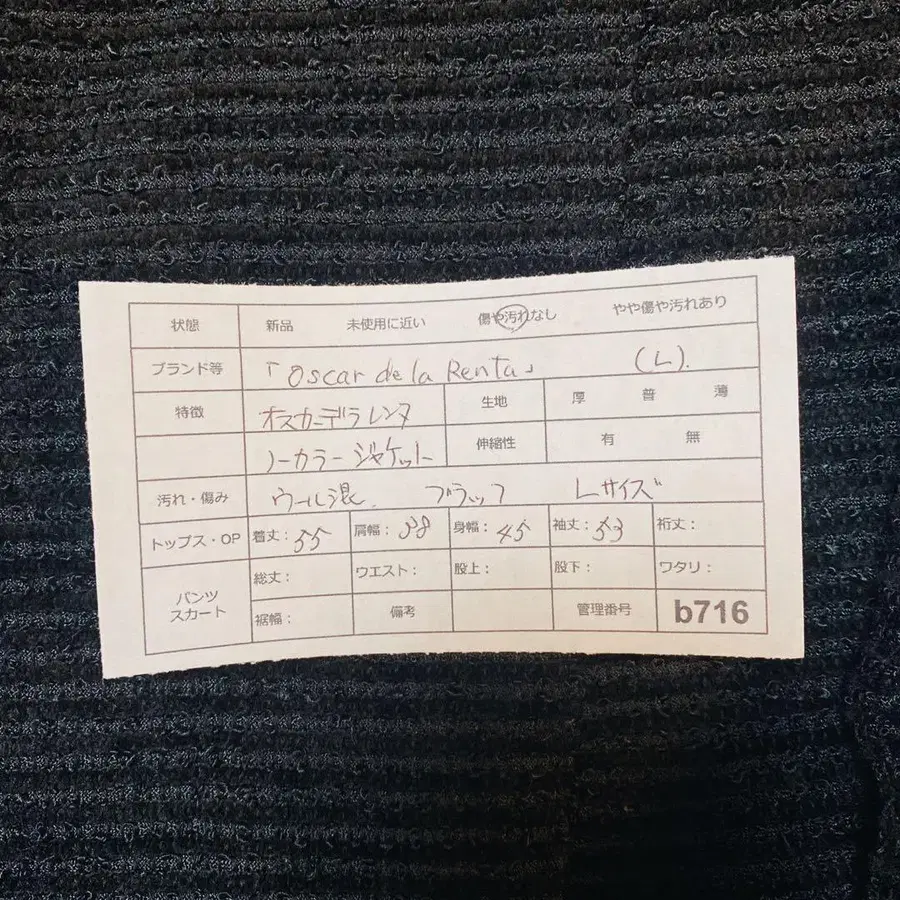 状態 新品 未使用に近い 傷や汚れなし やや傷や汚れあり
ブランド等 「Oscar de la Renta」 (L).
特徴 オスカーデラレンタ 生地 厚 普 薄
ノーカラージャケット 伸縮性 有 無
汚れ・傷み ウール混. ブラック Lサイズ
トップス・OP 着丈: 55 肩幅: 38 身幅: 45 袖丈: 53 裄丈:
パンツ スカート 総丈: ウエスト: 股上: 股下: ワタリ:
裾幅: 備考 管理番号 b716